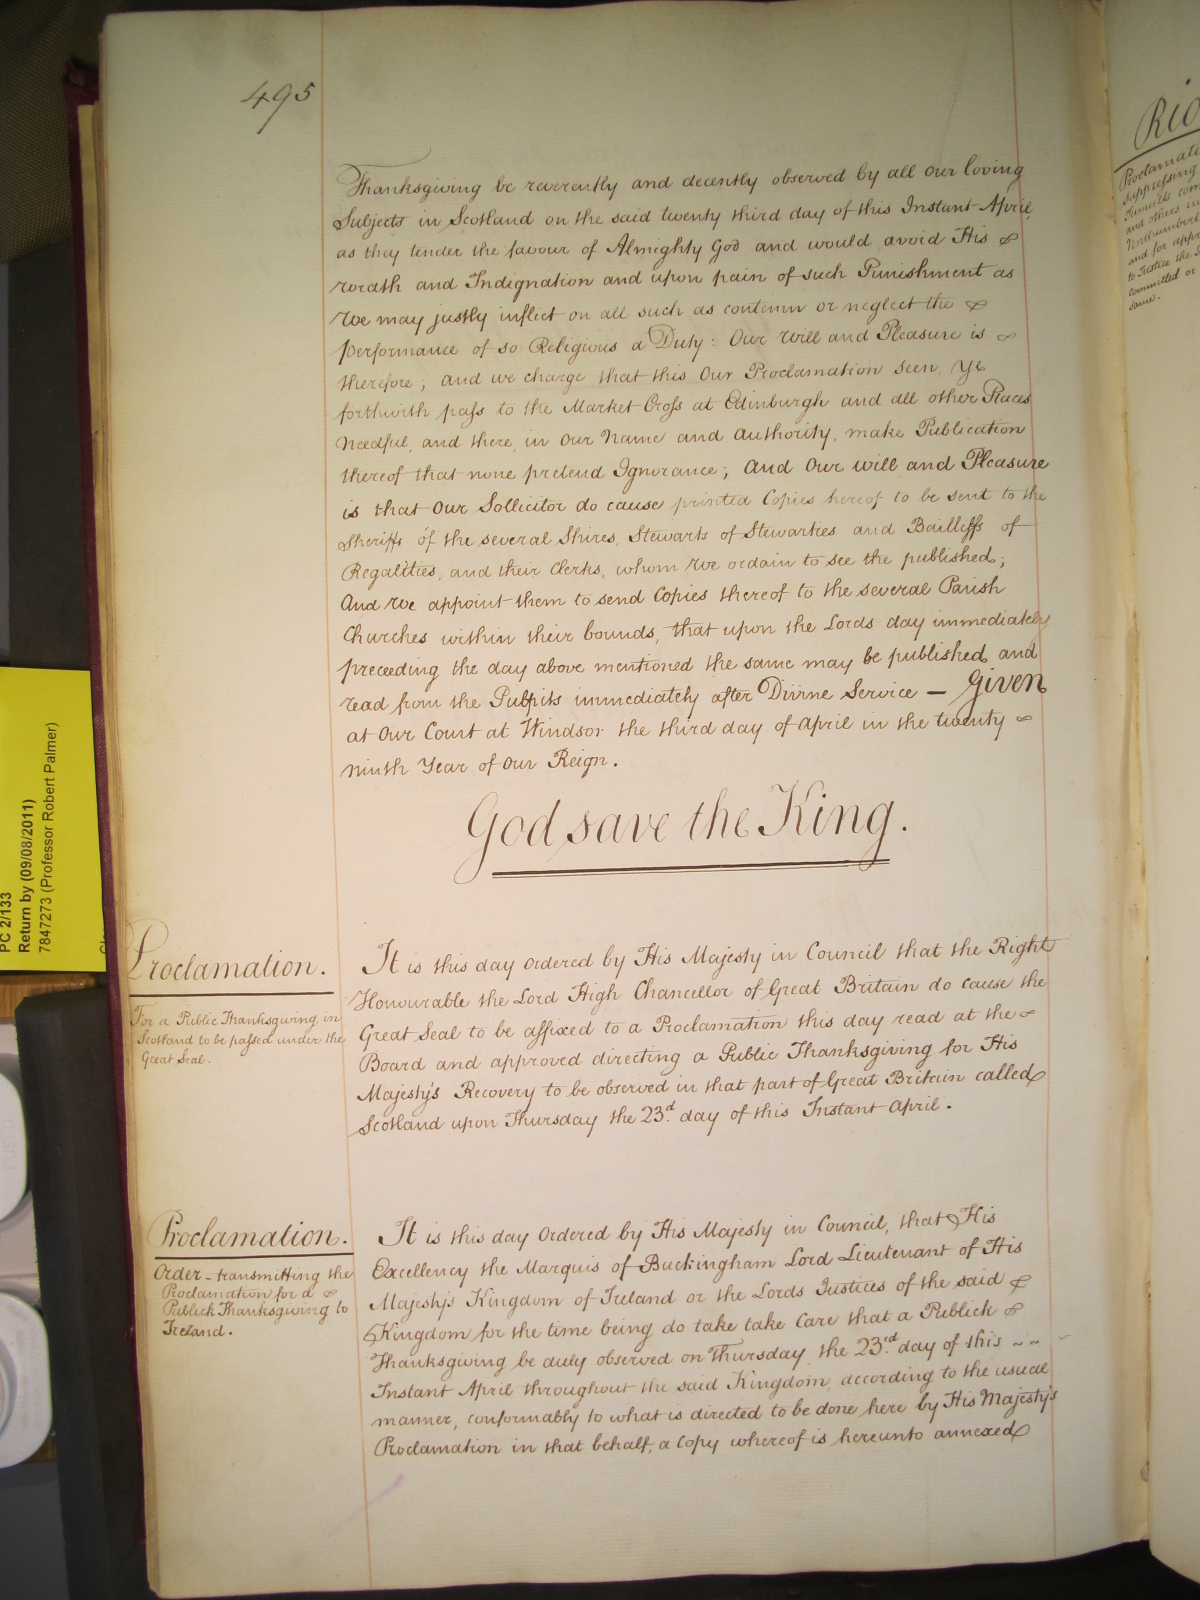 495
Thanksgiving be reverently and decently observed by all our loving
Subjects in Scotland on the said twenty third day of this Instant April,
as they tender the favour of Almighty God and would avoid His
wrath and Indignation and upon pain of such Punishment as
We may justly inflict on all such as contemn or neglect the
performance of so Religious a Duty: Our Will and Pleasure is
therefore; and we charge that this Our Proclamation seen, Ye
forthwith pass to the Market Cross at Edinburgh and all other Places
Needful, and there, in Our Name and Authority, make Publication
thereof that none pretend Ignorance; And Our will and Pleasure
is that Our Sollicitor do cause printed Copies hereof to be sent to the
Sheriffs of the several Shires, Stewarts of Stewarties and Bailliffs of
Regalities, and their Clerks, whom We ordain to see the published;
And We appoint them to send Copies thereof to the several Parish
Churches within their bounds, that upon the Lords day immediately
preceeding the day above mentioned the same may be published and
read from the Pulpits immediately after Divine Service — Given
at Our Court at Windsor the third day of April in the twenty
ninth Year of Our Reign.
God save the King.
Proclamation.
For a Public Thanksgiving in
Scotland to be passed under the
Great Seal.
It is this day ordered by His Majesty in Council that the Right
Honourable the Lord High Chancellor of Great Britain do cause the
Great Seal to be affixed to a Proclamation this day read at the
Board and approved directing a Public Thanksgiving for His
Majesty's Recovery to be observed in that part of Great Britain called
Scotland upon Thursday the 23d. day of this Instant April.
Proclamation.
Order - transmitting the
Proclamation for a
Publick Thanksgiving to
Ireland.
It is this day Ordered by His Majesty in Council, that His
Excellency the Marquis of Buckingham Lord Lieutenant of His
Majesty's Kingdom of Ireland or the Lords Justices of the said
Kingdom for the time being do take take Care that a Publick
Thanksgiving be duly observed on Thursday the 23rd day of this
Instant April throughout the said Kingdom, according to the usual
manner, conformably to what is directed to be done here by His Majesty's
Proclamation in that behalf, a Copy whereof is hereunto annexed
PC 2/133
Return by (09/08/2011)
7847273 (Professor Robert Palmer)
Proclamati
suppressing
Tumults com
and others in
and for appr
to Justice the
committed or
same.